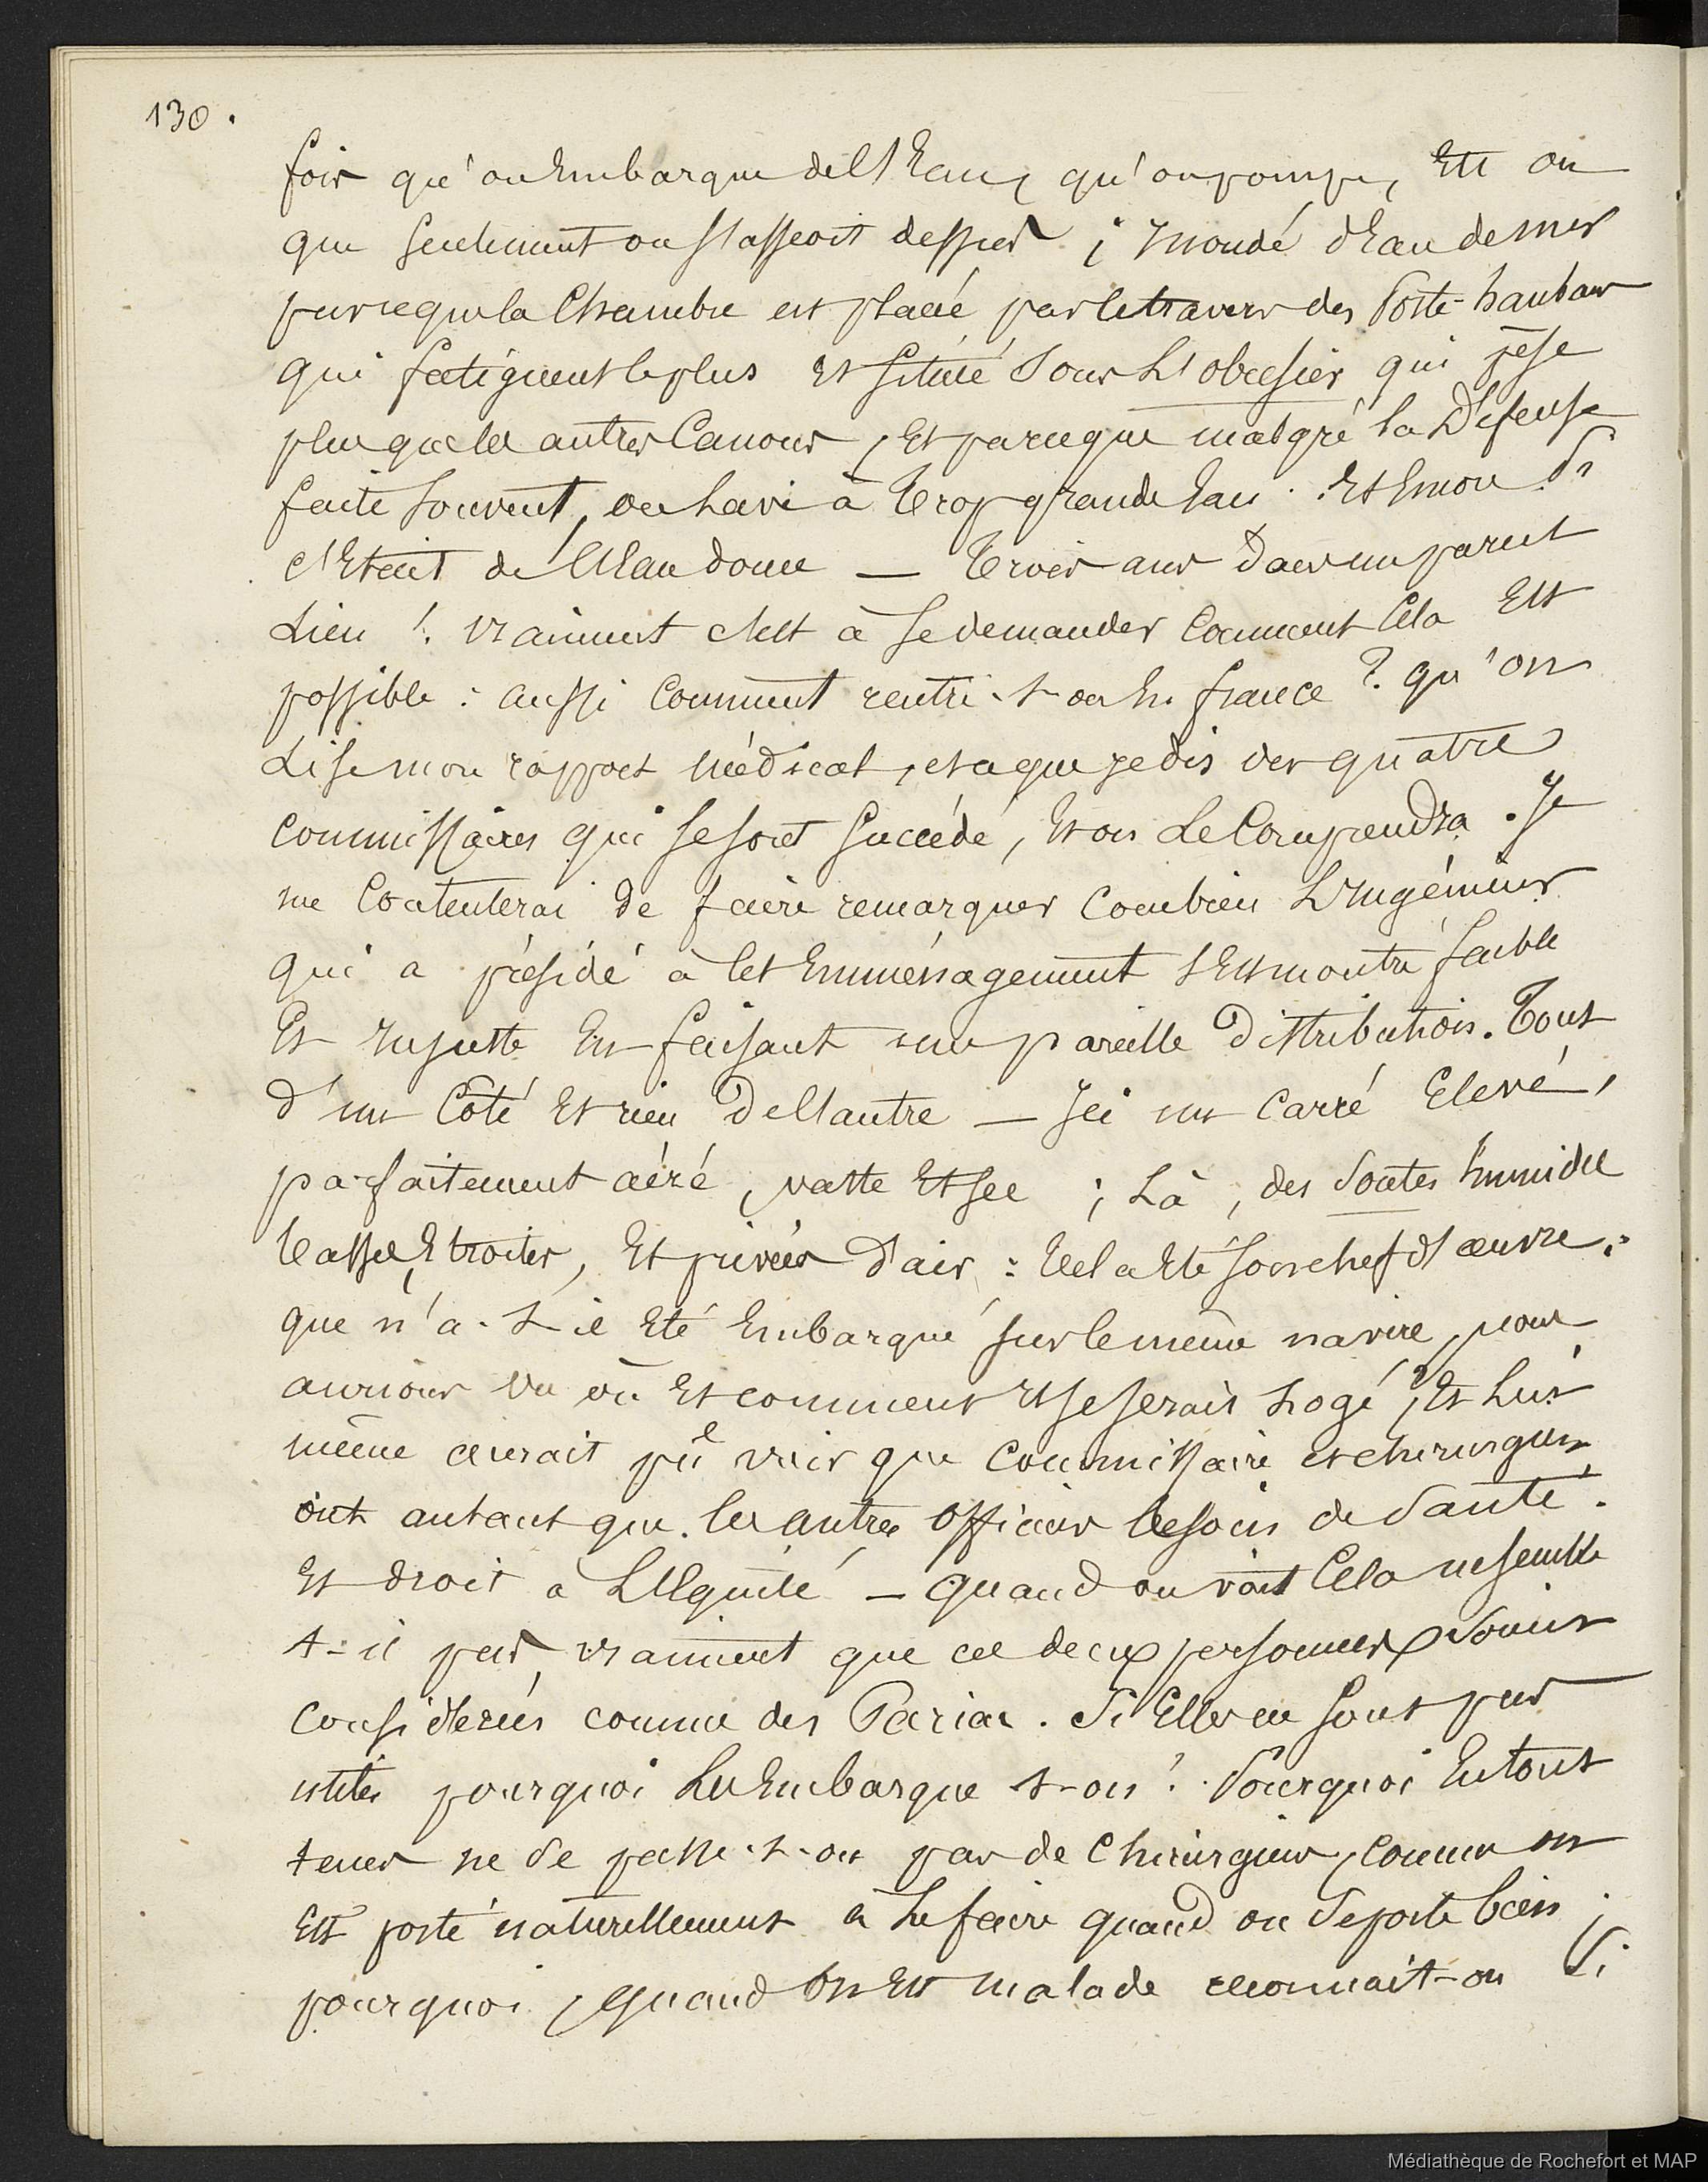 130.
fois qu'on Embarque de l'Eau, qu'on pompe, Et ou
que seulement on s'asseoit dessus ; Inondé d'Eau de mer
parceque la Chambre est placée par le travers des Porte-haubans
qui fatiguent le plus et située sous L'obusier qui pèse
plus que les autres Canons, Et parceque malgré la Défense
faite souvent, on lave à trop grande Eau. Et Encore Si
c'Etait de l'Eau douce — trois ans dans un pareil
Lieu ! vraiment c'est à se demander Comment Cela Est
possible : aussi Comment rentre-t-on En france ? qu'on
Lise mon rapport médical, et ce que je dis des quatre
Commissaires qui se sont succédé, Et on Le Comprendra. Je
me Contenterai de faire remarquer Combien L'Ingénieur
qui a présidé à Cet Emménagement s'Est montré faible
Et Injuste En faisant une pareille Distribution. Tout
d'un Côté Et rien De l'autre — Ici un Carré Elevé,
parfaitement aéré, vaste Et sec ; Là, des Soutes humides
basses, Etroites, Et privées d'air : tel a Eté son chef d'œuvre.
que n'a-t-il Eté Embarqué sur le même navire, nous
aurions vu où Et comment Il se serait Logé, Et Lui
même aurait pu voir que Commissaire et chirurgien
ont autant que les autres officiers besoin de Santé
Et droit à L'Equité — quand on voit Cela ne semble
t-il pas vraiment que ces deux personnes Soient
Considérées comme des Parias. Si Elles ne sont pas
utiles pourquoi Les Embarque t-on ? Pourquoi En tout
tems ne se passe-t-on pas de Chirurgien, comme on
Est porté naturellement à Le faire quand on Se porte bien ;
pourquoi, quand on Est malade reconnait-on Si
Médiathèque de Rochefort et MAP